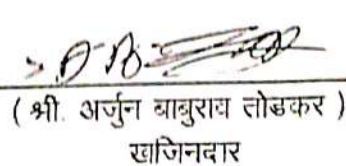 ( श्री. अर्जुन बाबुराव तोडकर )
खजिनदार